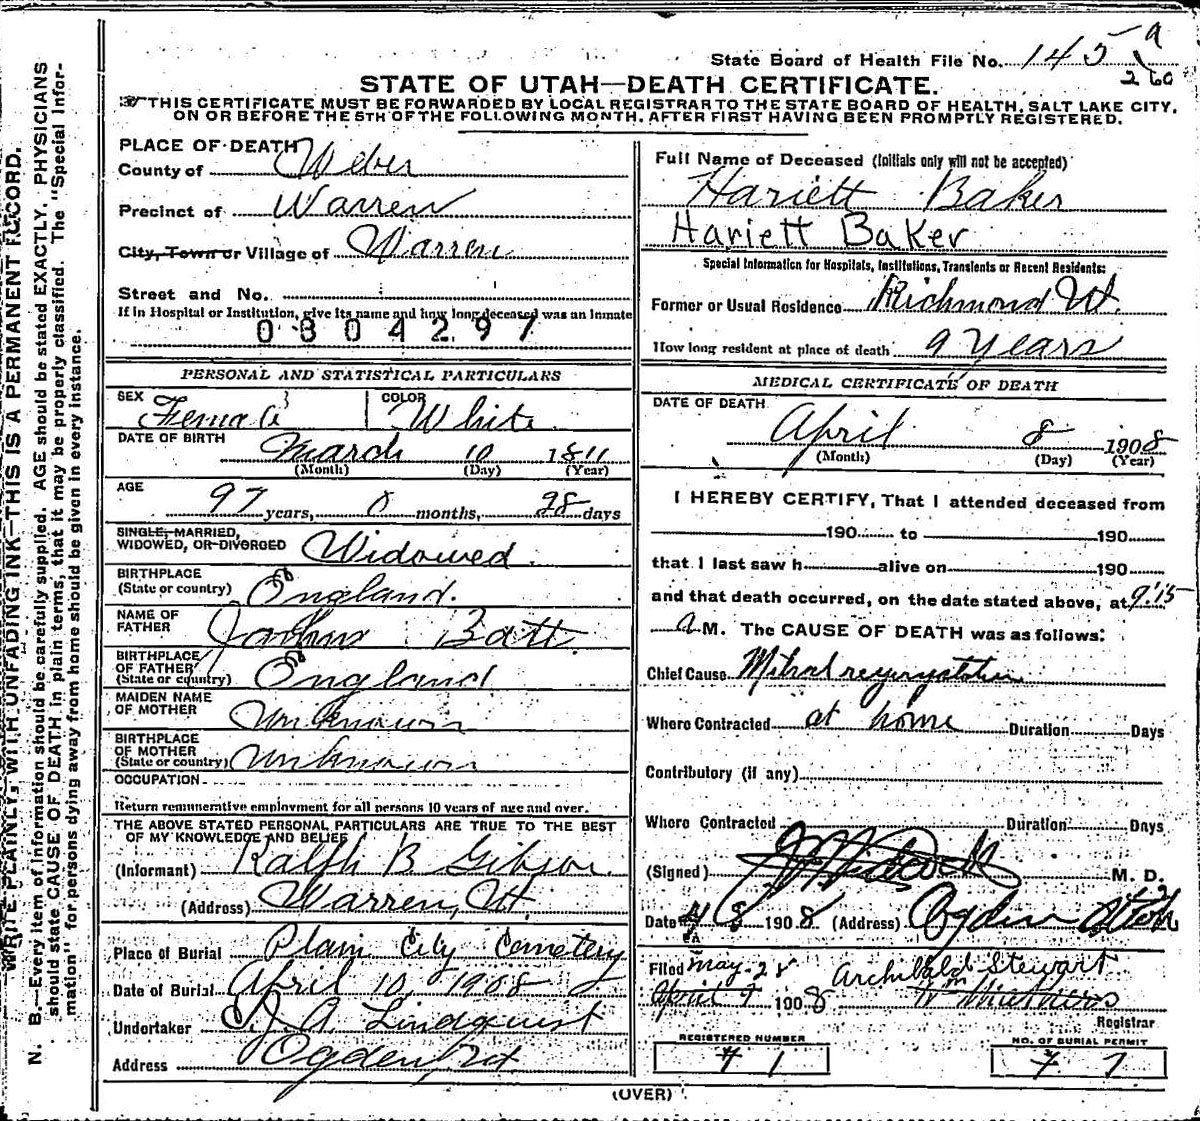 State Board of Health File No. 145 a
260
STATE OF UTAH—DEATH CERTIFICATE.
THIS CERTIFICATE MUST BE FORWARDED BY LOCAL REGISTRAR TO THE STATE BOARD OF HEALTH, SALT LAKE CITY,
ON OR BEFORE THE 5TH OF THE FOLLOWING MONTH, AFTER FIRST HAVING BEEN PROMPTLY REGISTERED.
WRITE PLAINLY, WITH UNFADING INK—THIS IS A PERMANENT RECORD.
N. B.—Every item of information should be carefully supplied. AGE should be stated EXACTLY. PHYSICIANS
should state CAUSE OF DEATH in plain terms, that it may be properly classified. The "Special Infor-
mation" for persons dying away from home should be given in every instance.
PLACE OF DEATH
County of Weber
Precinct of Warren
City, Town or Village of Warren
Street and No.
If in Hospital or Institution, give its name and how long deceased was an inmate
0304297
PERSONAL AND STATISTICAL PARTICULARS
SEX Female COLOR White
DATE OF BIRTH March 10 1811
(Month) (Day) (Year)
AGE 97 years, 0 months, 28 days
SINGLE, MARRIED,
WIDOWED, OR DIVORCED Widowed
BIRTHPLACE
(State or country) England.
NAME OF
FATHER Batt
BIRTHPLACE
OF FATHER
(State or country) England
MAIDEN NAME
OF MOTHER Unknown
BIRTHPLACE
OF MOTHER
(State or country) Unknown
OCCUPATION
Return remunerative employment for all persons 10 years of age and over.
THE ABOVE STATED PERSONAL PARTICULARS ARE TRUE TO THE BEST
OF MY KNOWLEDGE AND BELIEF
(Informant) Ralph B Gibson.
(Address) Warren, Ut.
Place of Burial Plain City Cemetery
Date of Burial April 10, 1908
Undertaker J. A. Lindquist
Address Ogden, Ut.
Full Name of Deceased (Initials only will not be accepted)
Hariett Baker
Hariett Baker
Special Information for Hospitals, Institutions, Transients or Recent Residents:
Former or Usual Residence Richmond Ut.
How long resident at place of death 9 years
MEDICAL CERTIFICATE OF DEATH
DATE OF DEATH
April 8 1908
(Month) (Day) (Year)
I HEREBY CERTIFY, That I attended deceased from
190 to 190
that I last saw h alive on 190
and that death occurred, on the date stated above, at 9:15
a M. The CAUSE OF DEATH was as follows:
Chief Cause Mitral regurgitation
Where Contracted at home Duration Days
Contributory (if any)
Where Contracted Duration Days
(Signed) M. D.
Date 4/8 1908 (Address) Ogden Utah
Filed May-28 Archibald Stewart
April 9 1908
Registrar
REGISTERED NUMBER
71
NO. OF BURIAL PERMIT
77
(OVER)